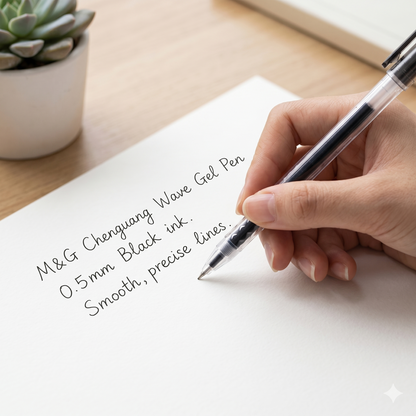 M&G Chenguang Wave Gel Pen
0.5mm Black ink.
Smooth, precise lines.